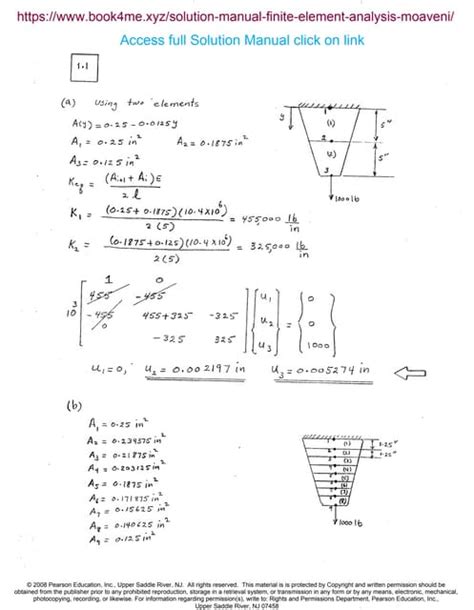 https://www.book4me.xyz/solution-manual-finite-element-analysis-moaveni/
Access full Solution Manual click on link
1.1
(a) Using two elements
A(y) = 0.25 - 0.0125y
A₁ = 0.25 in² A₂ = 0.1875 in²
A₃ = 0.125 in²
Keq = (Ai+1 + Ai)E / 2l
K₁ = (0.25 + 0.1875)(10.4×10⁶) / 2(5) = 455,000 lb/in
K₂ = (0.1875 + 0.125)(10.4×10⁶) / 2(5) = 325,000 lb/in
y
1
(1)
5"
2
(2)
5"
3
1000 lb
1 0
10³ [455 -455
-455 455+325 -325
0 -325 325] {u₁ u₂ u₃} = {0 0 1000}
u₁ = 0, u₂ = 0.002197 in u₃ = 0.005274 in
(b)
A₁ = 0.25 in²
A₂ = 0.234375 in²
A₃ = 0.21875 in²
A₄ = 0.203125 in²
A₅ = 0.1875 in²
A₆ = 0.171875 in²
A₇ = 0.15625 in²
A₈ = 0.140625 in²
A₉ = 0.125 in²
(1)
(2)
(3)
(4)
(5)
(6)
(7)
(8)
1.25"
1.25"
1000 lb
© 2008 Pearson Education, Inc., Upper Saddle River, NJ. All rights reserved. This material is protected by Copyright and written permission should be
obtained from the publisher prior to any prohibited reproduction, storage in a retrieval system, or transmission in any form or by any means, electronic, mechanical,
photocopying, recording, or likewise. For information regarding permission(s), write to: Rights and Permissions Department, Pearson Education, Inc.,
Upper Saddle River, NJ 07458